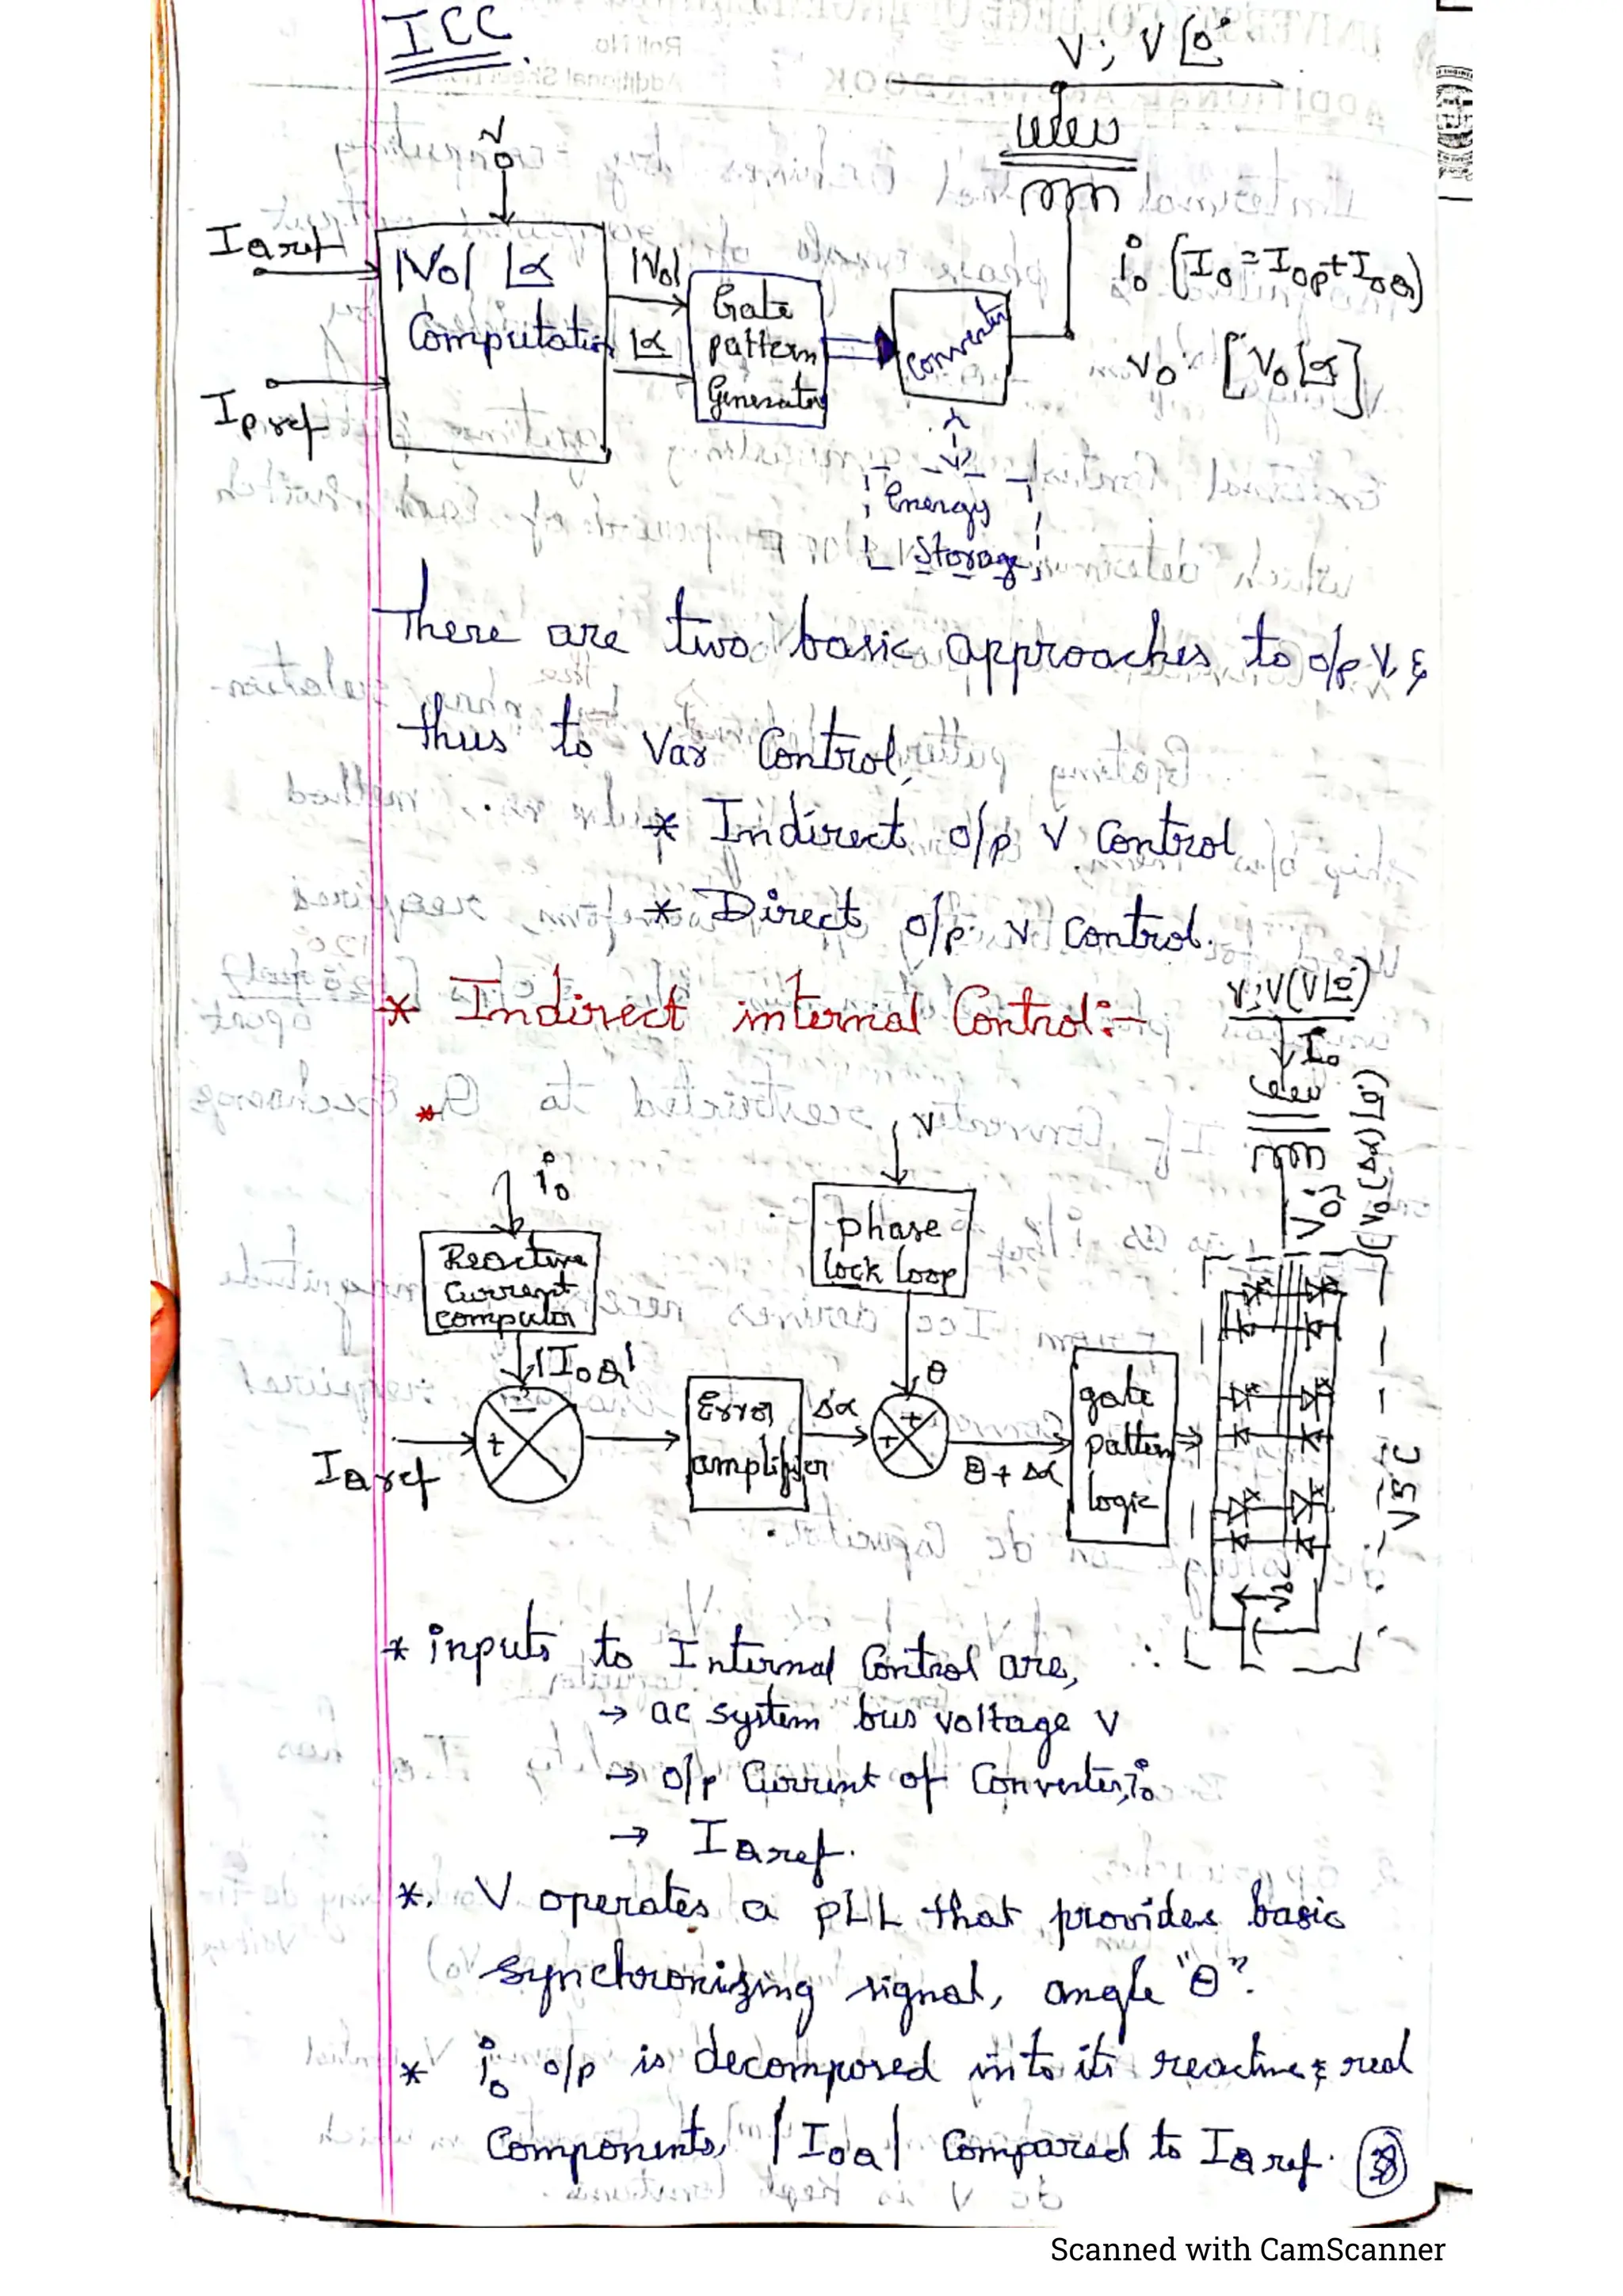 ICC.
V; V∠0°
v
IQref
|Vo| ∠α
Computation
|Vo|
∠α
Gate
pattern
Generator
Converter
io (Io = Iop + IoQ)
vo [Vo∠α]
Ip.ref
Energy
Storage
There are two basic approaches to o/p V, &
thus to Var Control,
* Indirect o/p V Control
* Direct o/p V Control.
* Indirect internal Control:-
v; V(V∠0°)
Io
*
v
io
Reactive
Current
computer
phase
lock loop
Vo;
(Vo(Δα)∠0°)
|IoQ|
θ
IQref
+
−
Error
amplifier
Δα
+
+
θ + Δα
gate
pattern
logic
VSC
* inputs to Internal Control are,
→ ac system bus voltage v
→ o/p Current of Converter, io
→ IQref.
*. V operates a PLL that provides basic
synchronizing signal, angle "θ".
* io o/p is decomposed into its reactive & real
Components, |IoQ| Compared to IQref.
Scanned with CamScanner